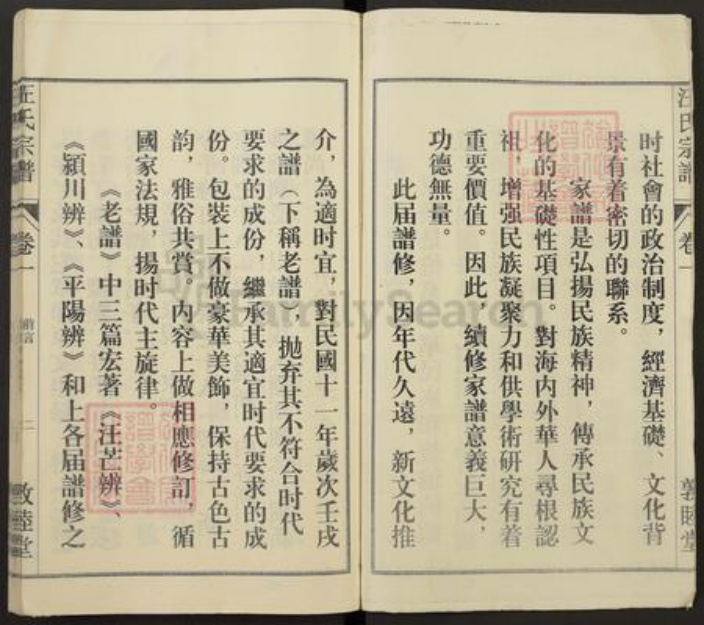 汪氏宗譜
卷一
敦睦堂
時社會的政治制度，經濟基礎、文化背
景有着密切的聯系。
家譜是弘揚民族精神，傳承民族文
化的基礎性項目。對海内外華人尋根認
祖，增强民族凝聚力和供學術研究有着
重要價值。因此，續修家譜意義巨大，
功德無量。
此届譜修，因年代久遠，新文化推
介，為適时宜，對民國十一年歲次壬戌
之譜（下稱老譜），抛弃其不符合时代
要求的成份，繼承其適宜时代要求的成
份。包裝上不做豪華美飾，保持古色古
韵，雅俗共賞。内容上做相應修訂，循
國家法規，揚时代主旋律。
《老譜》中三篇宏著《汪芒辨》、
《潁川辨》、《平陽辨》和上各届譜修之
汪氏宗譜
卷一
前言
二
敦睦堂
FamilySearch